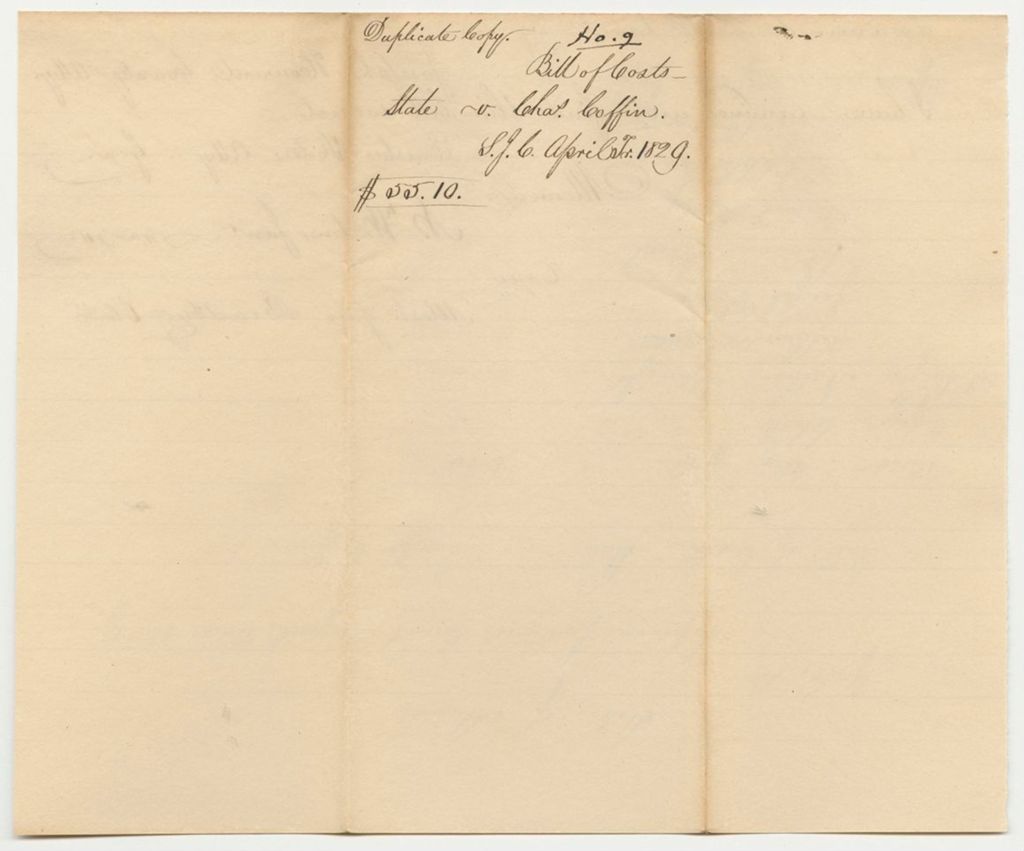 Duplicate Copy. No. 9
Bill of Costs-
State v. Chas. Coffin.
S.J.C. April Tr. 1829.
$55.10.